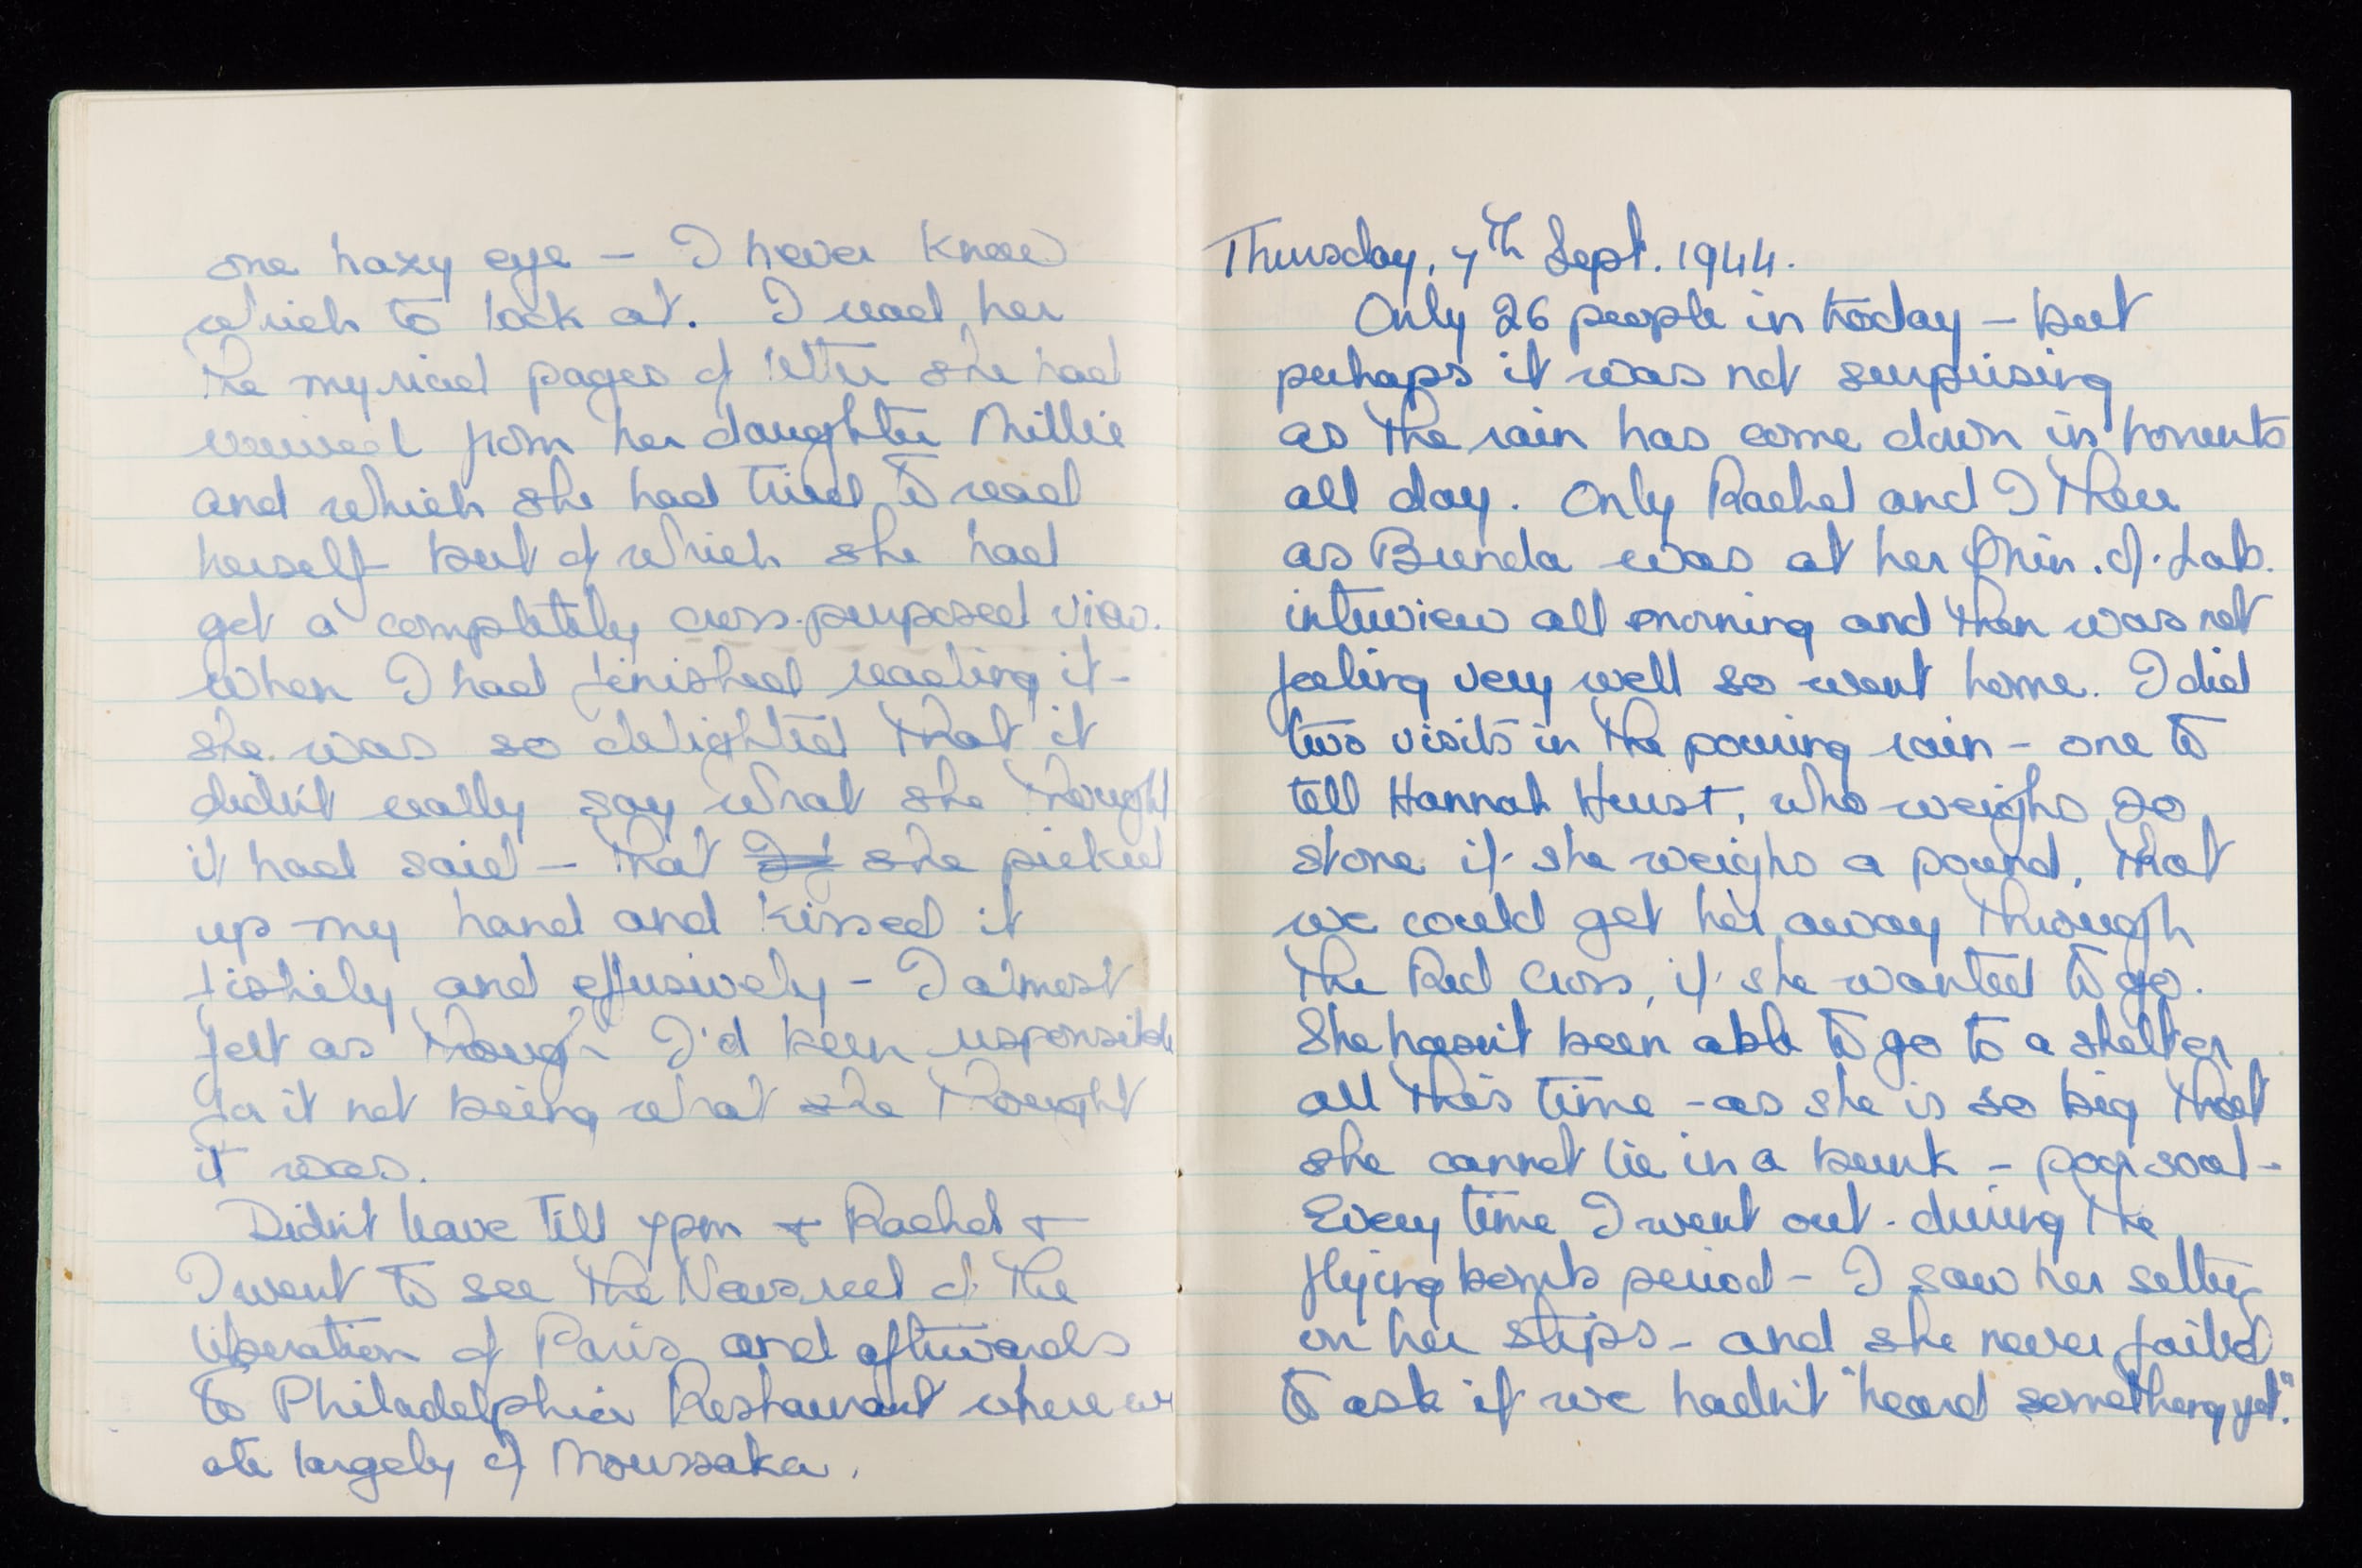 one hazy eye – I never knew
which to look at. I read her
the myriad pages of letter she had
received from her daughter Millie
and which she had tried to read
herself but of which she had
got a completely cross-purposed view.
When I had finished reading it –
she was so delighted that it
didn't really say what she thought
it had said – that she picked
up my hand and kissed it
fishily and effusively – I almost
felt as though I'd been responsible
for it not being what she thought
it was.
Didn't leave till 7pm & Rachel &
I went to see the Newsreel of the
liberation of Paris and afterwards
to Philadelphia Restaurant where we
ate largely of Moussaka.
Thursday, 7th Sept. 1944.
Only 26 people in today – but
perhaps it was not surprising
as the rain has come down in torrents
all day. Only Rachel and I there
as Bunda was at her Min. of. Lab.
interview all morning and then was not
feeling very well so went home. I did
two visits in the pouring rain – one to
tell Hannah Hurst, who weighs 20
stone if she weighs a pound, that
we could get her away through
the Red Cross, if she wanted to go.
She hasn't been able to go to a shelter
all this time – as she is so big that
she cannot lie in a bunk – poor soul –
Every time I went out – during the
flying bombs period – I saw her setting
on her steps – and she never failed
to ask if we hadn't "heard something yet."